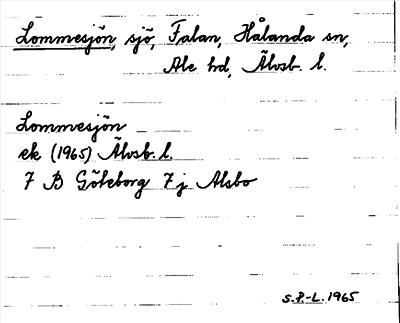 Lommesjön, sjö, Falan, Hålanda sn,
Ale hd, Älvsb. l.
Lommesjön
ek (1965) Älvsb. l.
7 B Göteborg 7 j Alsbo
S.P.-L. 1965